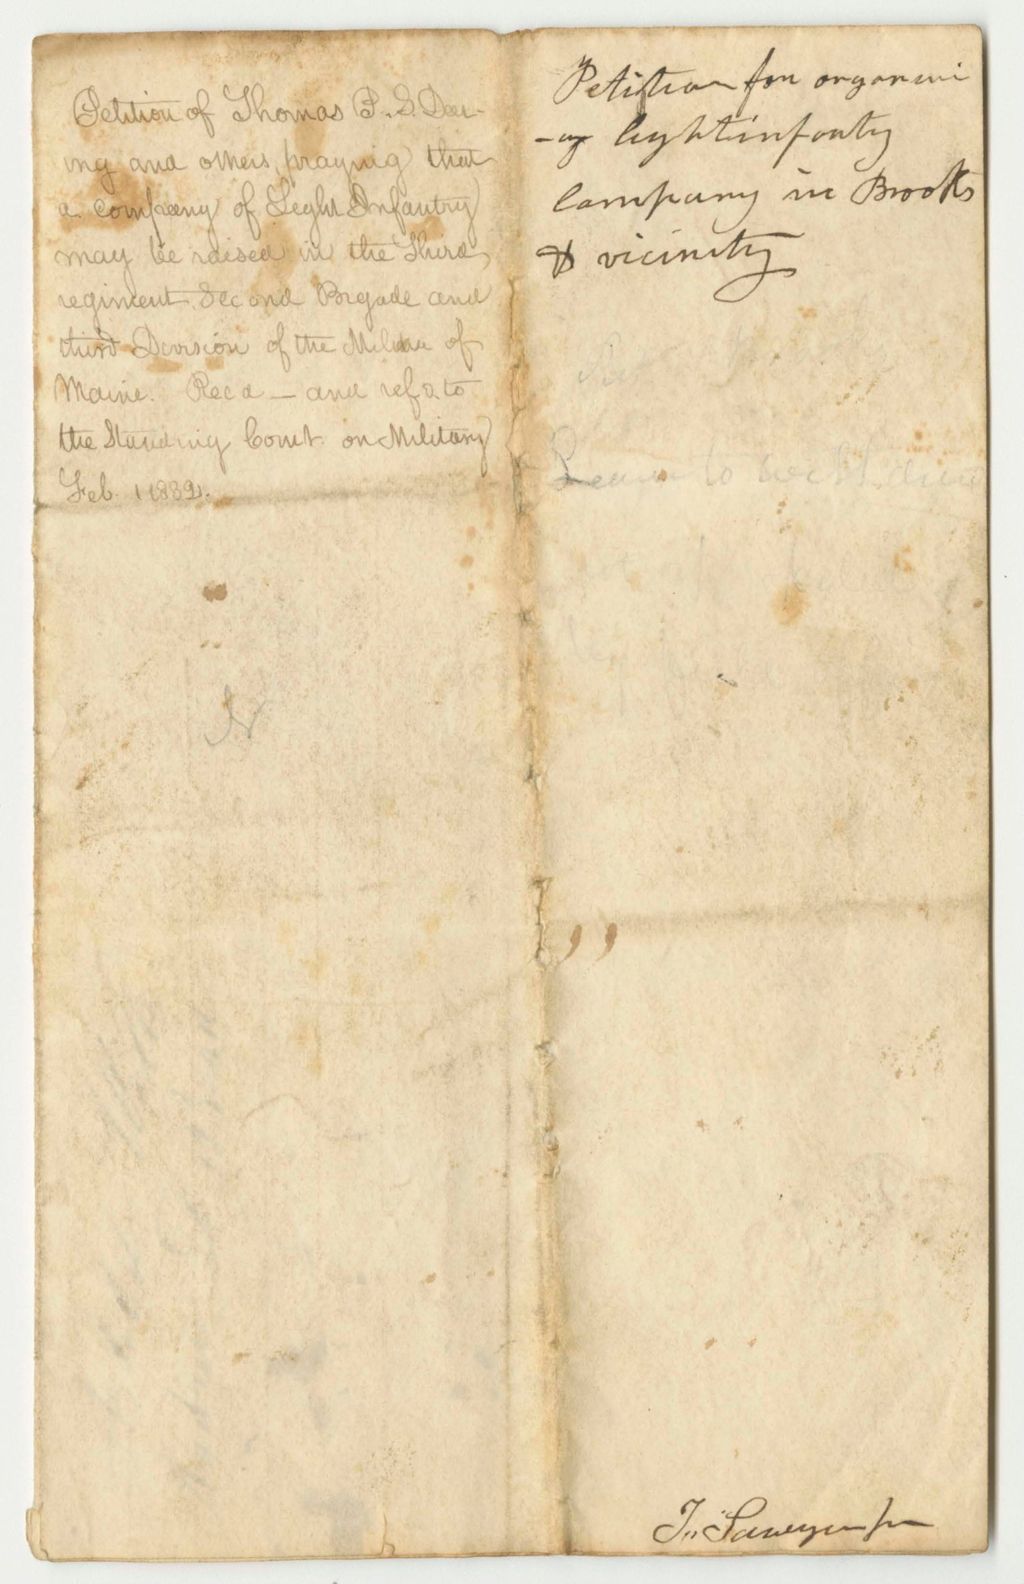 Petition of Thomas P. S. Deer-
ing and others, praying that
a company of Light Infantry
may be raised in the Third
regiment, Second Brigade and
third Division of the Militia of
Maine. Recd — and refd to
the Standing Comt. on Military
Feb. 1 1832.
Petition for organizi
-ng lightinfanty
Company in Brooks
& vicinity
Leave to
Js. Sawyer jr